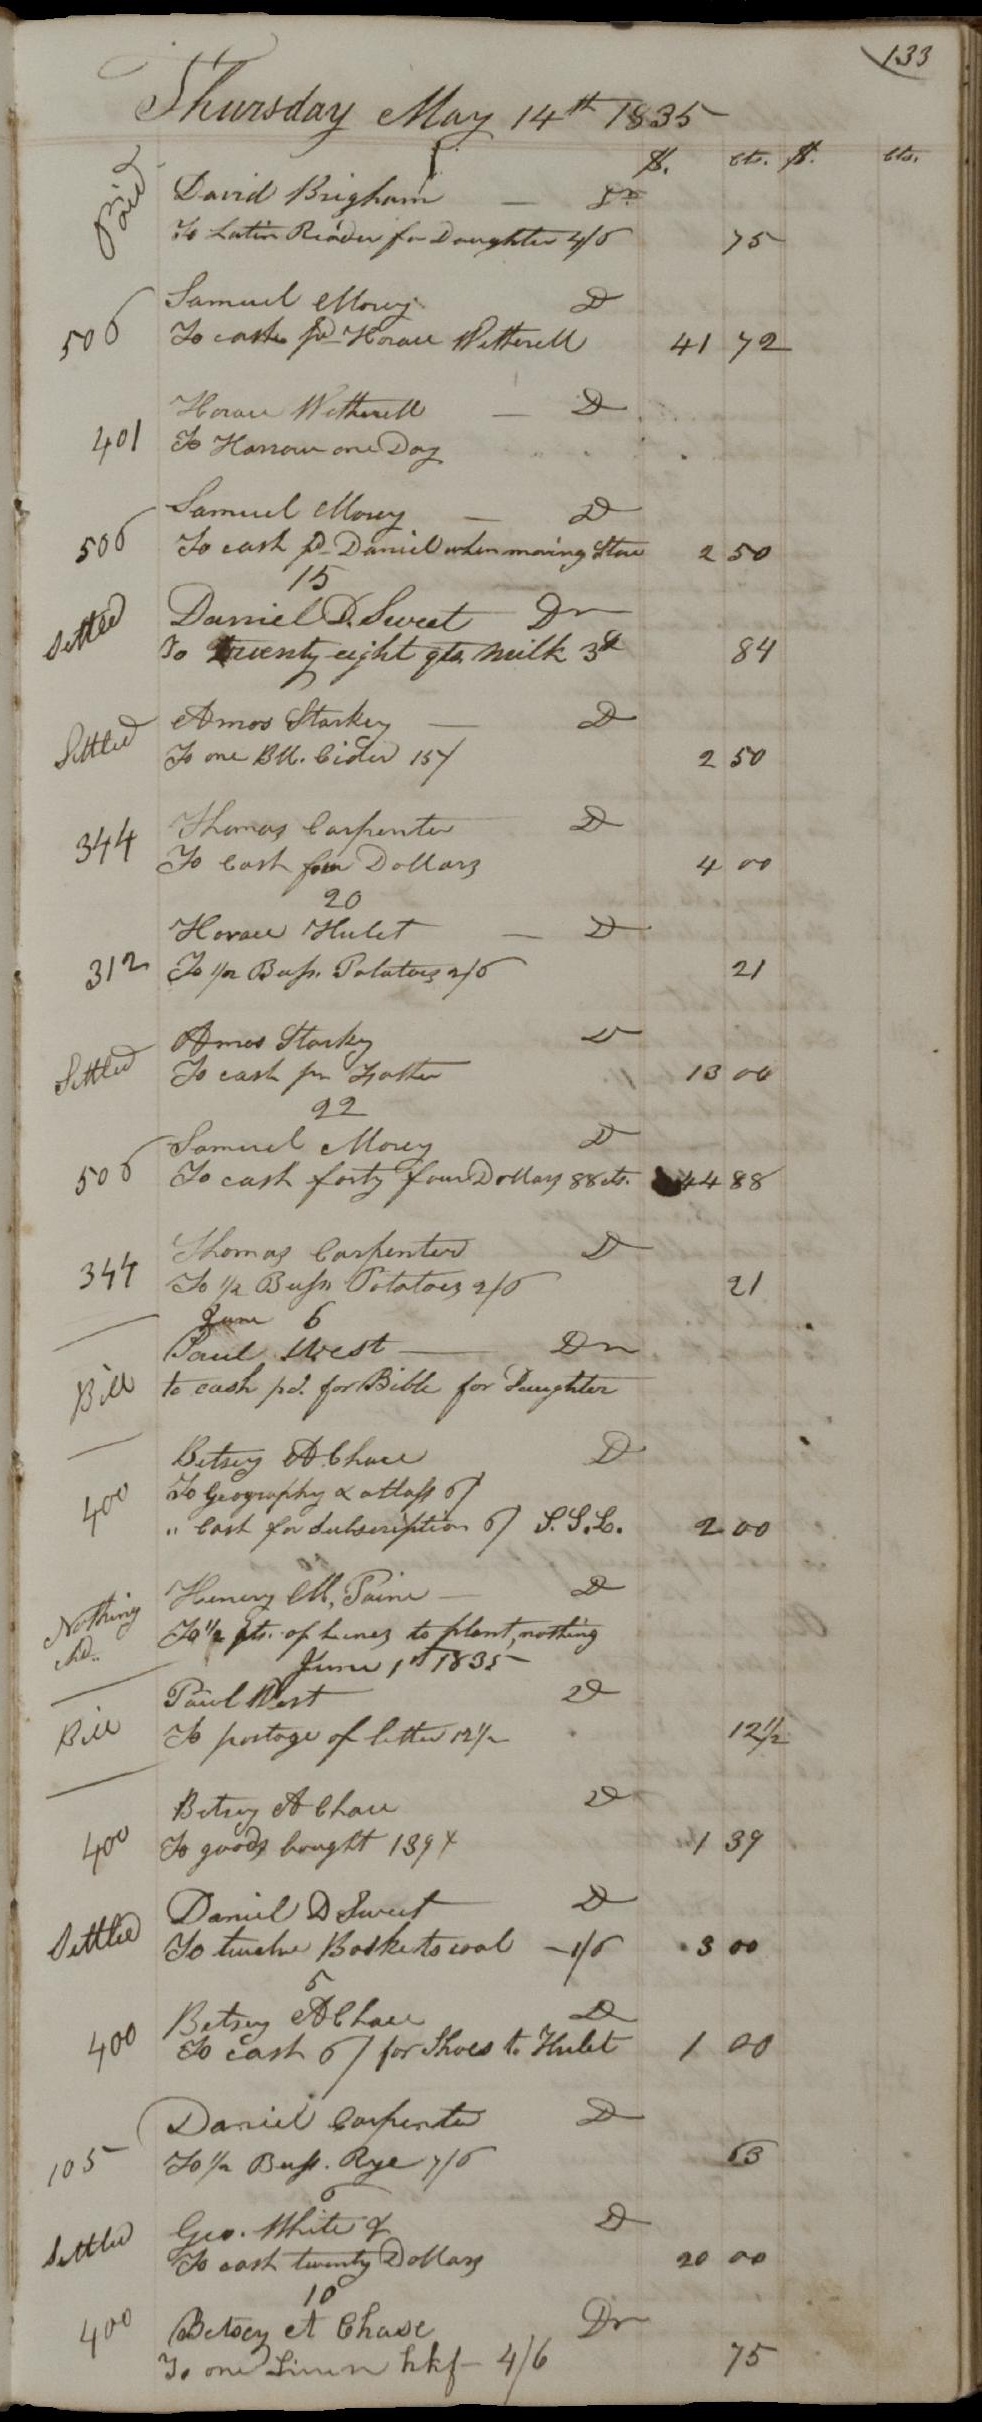 133
Thursday May 14th 1835
$. cts. $. cts.
Paid David Brigham — Dr
To Latin Reader for Daughter 4/6 75
506 Samuel Morey D
To cash pd Horace Wetherell 41 72
Horace Wetherell — D
401 To Harrow one Day
Samuel Morey — D
506 To cash pd Daniel when moving Stone 2 50
15
Settled Daniel D. Sweet Dr
To twenty eight qts milk 3d 84
Settled Amos Starkey — D
To one Bbl. Cider 15/ 2 50
344 Thomas Carpenter D
To Cash four Dollars 4 00
20
Horace Hulet — D
312 To 1/2 Bush. Potatoes 2/6 21
Amos Starkey D
Settled To cash pr Foster 13 00
22
Samuel Morey D
506 To cash forty four Dollars 88 cts. 44 88
Thomas Carpenter D
344 To 1/2 Bush Potatoes 2/6 21
June 6
Paul West — Dr
Bill to cash pd. for Bible for Daughter
Betsey A. Chace D
400 To Geography & atlass 6/
" Cash for subscription 6/ S.S.L. 2 00
Henery M. Paine — D
Nothing Ad.. To 1/2 pts. of beenes to plant, nothing
June 1st 1835
Paul West D
Bill To postage of letter 12 1/2 12 1/2
Betsey A Chace D
400 To goods bought 139 1 39
Daniel D Sweet D
Settled To twelve Baskets coal — 1/6 3 00
5
Betsey A Chace D
400 To cash 6/ for Shoes to Hulet 1 00
Daniel Carpenter D
105 To 1/2 Bush. Rye 7/6 63
6
Geo. White 2d D
Settled To cash twenty Dollars 20 00
10
400 Betsey A Chase Dr
To one Linen hkf — 4/6 75